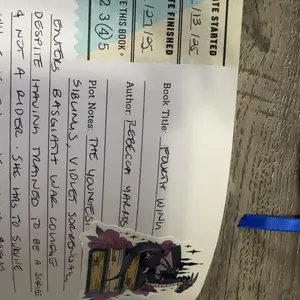 ATE STARTED
/13/25
TE FINISHED
/27/25
TE THIS BOOK
2 3 4 5
Book Title: FOURTH WING
Author: REBECCA YARROS
Plot Notes: THE YOUNGEST
SIBLING, VIOLET SORRENGAIL
ENTERS BASGIATH WAR COLLEGE
DESPITE HAVING TRAINED TO BE A SCRIBE
& NOT A RIDER. SHE HAS TO SURVIVE